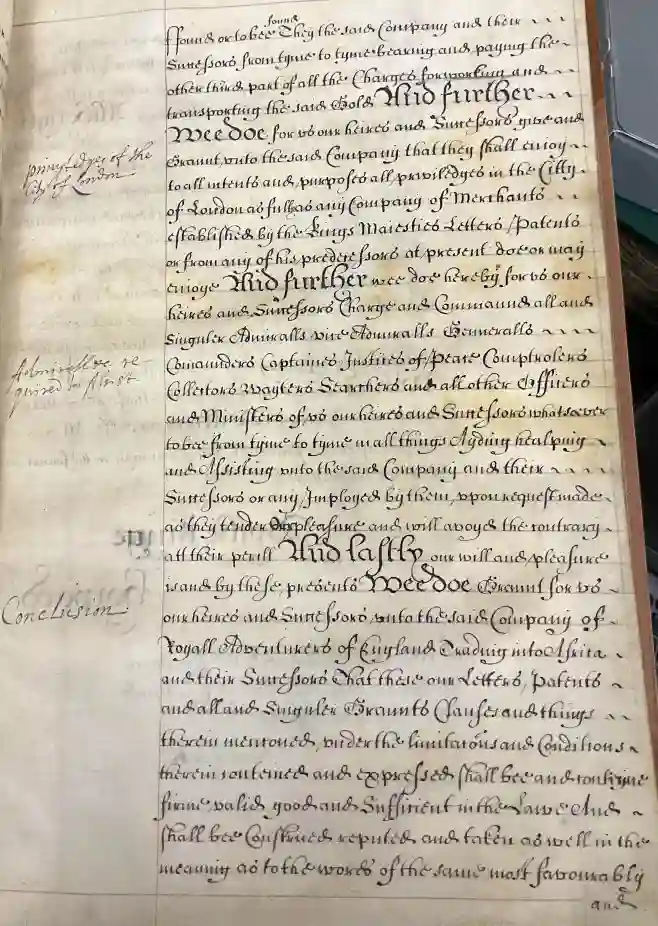 found
ffound or to bee They the said Company and their
Successors from tyme to tyme bearing and paying the
other third part of all the Charges for working and
transporting the said Gold And further
Wee doe for vs our heires and Successors giue and
Graunt vnto the said Company that they shall enioy
priuyledges of the
Citty of London
to all intents and purposes all priviledges in the Citty
of London as fully as any Company of Merchants
established by the Kings Maiesties Letters Patents
or from any of his predecessors at present doe or may
enioye And further wee doe hereby for vs our
heires and Successors Charge and Commaund all and
Singuler Admiralls vice Admiralls Generalls
Admirall &c re-
quired to Assist
Comanders Captaines Justices of Peace Comptrolers
Collectors Wayters Searchers and all other Officers
and Ministers of vs our heires and Successors whatsoever
to bee from tyme to tyme in all things Ayding healping
and Assisting vnto the said Company and their
Successors or any Imployed by them, vpon request made
as they tender our pleasure and will avoyd the contrary
att their perill And lastly our will and pleasure
is and by these presents Wee doe Graunt for vs
Conclusion
our heires and Successors vnto the said Company of
Royall Adventurers of England Trading into Africa
and their Successors That these our Letters Patents
and all and Singuler Graunts Clauses and things
therein mentoned, vnder the limitatons and Conditions
therein conteined and expressed shall bee and continue
firme valid good and Sufficient in the Lawe And
shall bee Construed reputed and taken as well in the
meaning as to the words of the same most favourably
and